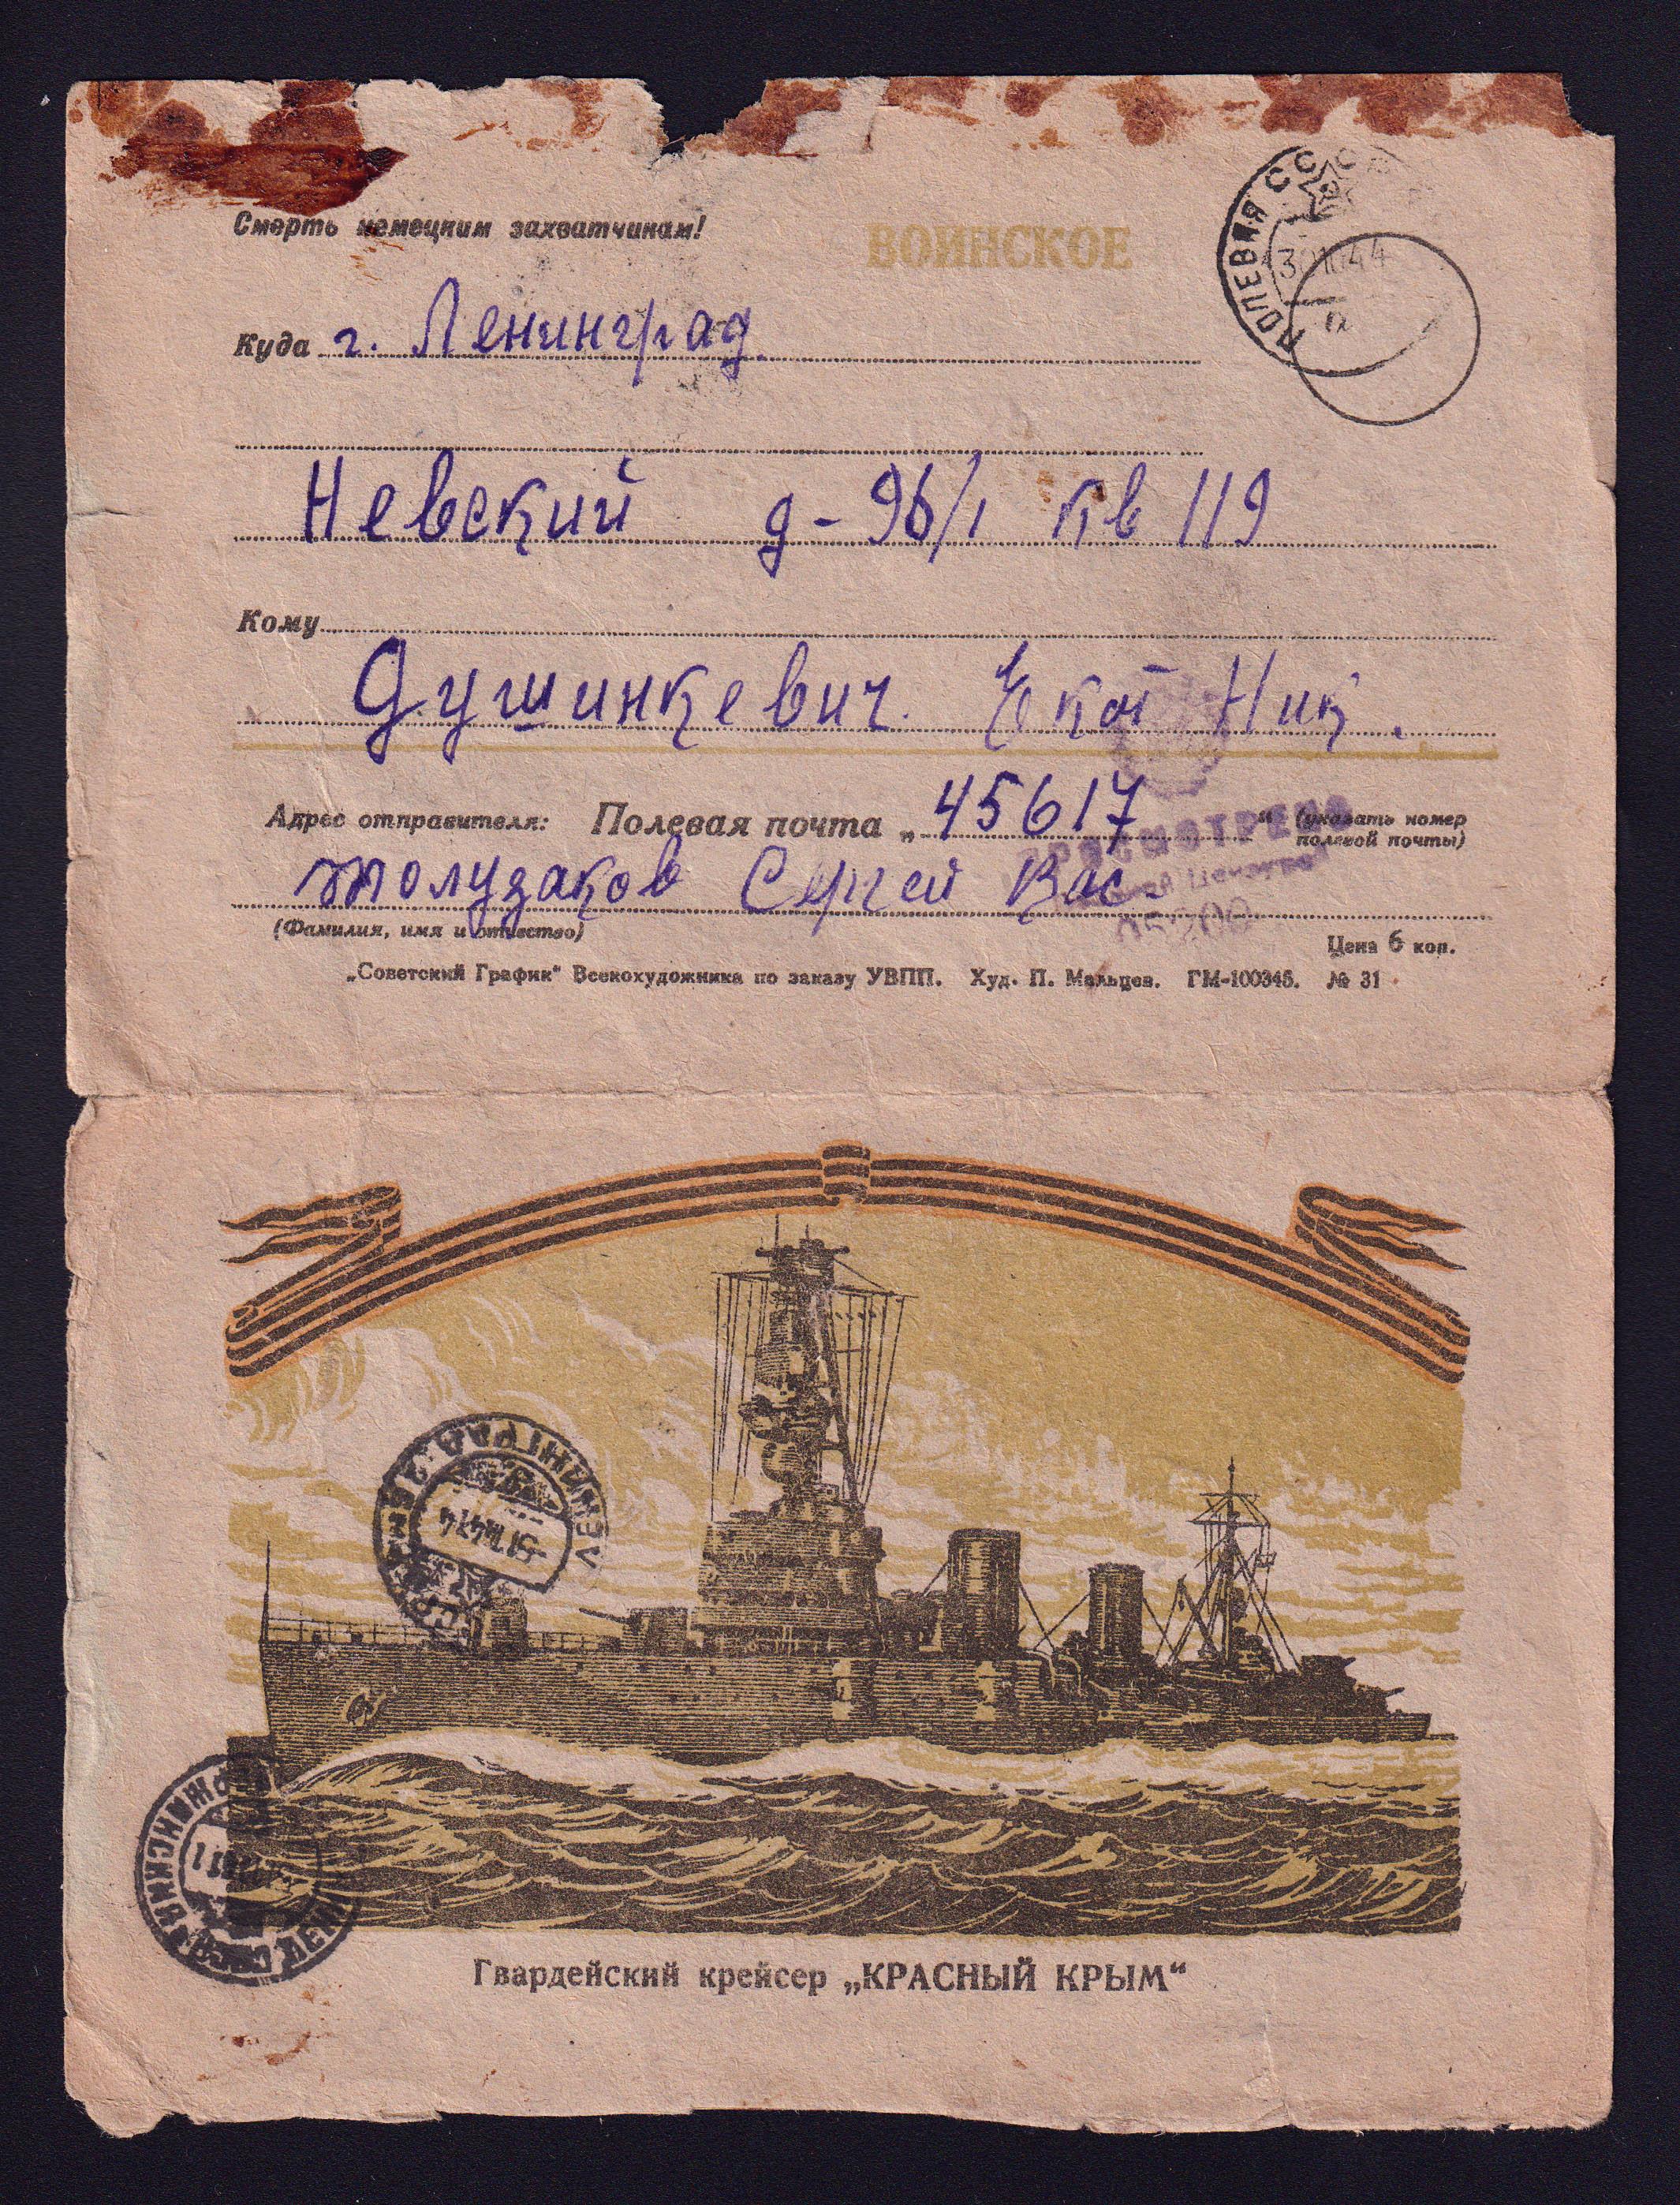 Смерть немецким захватчикам!
ВОИНСКОЕ
ПОЛЕВАЯ СССР
44
Куда г. Ленинград
Невский д-96/1 кв 119
Кому
Душинкевич. Екат Ник.
Адрес отправителя: Полевая почта „45617“ (указать номер полевой почты)
ПРОСМОТРЕНО
Толузаков Сергей Вас.
(Фамилия, имя и отчество)
Цена 6 коп.
„Советский График“ Всекохудожника по заказу УВПП. Худ. П. Мальцев. ГМ-100345. № 31
ЛЕНИНГРАД
Гвардейский крейсер „КРАСНЫЙ КРЫМ“